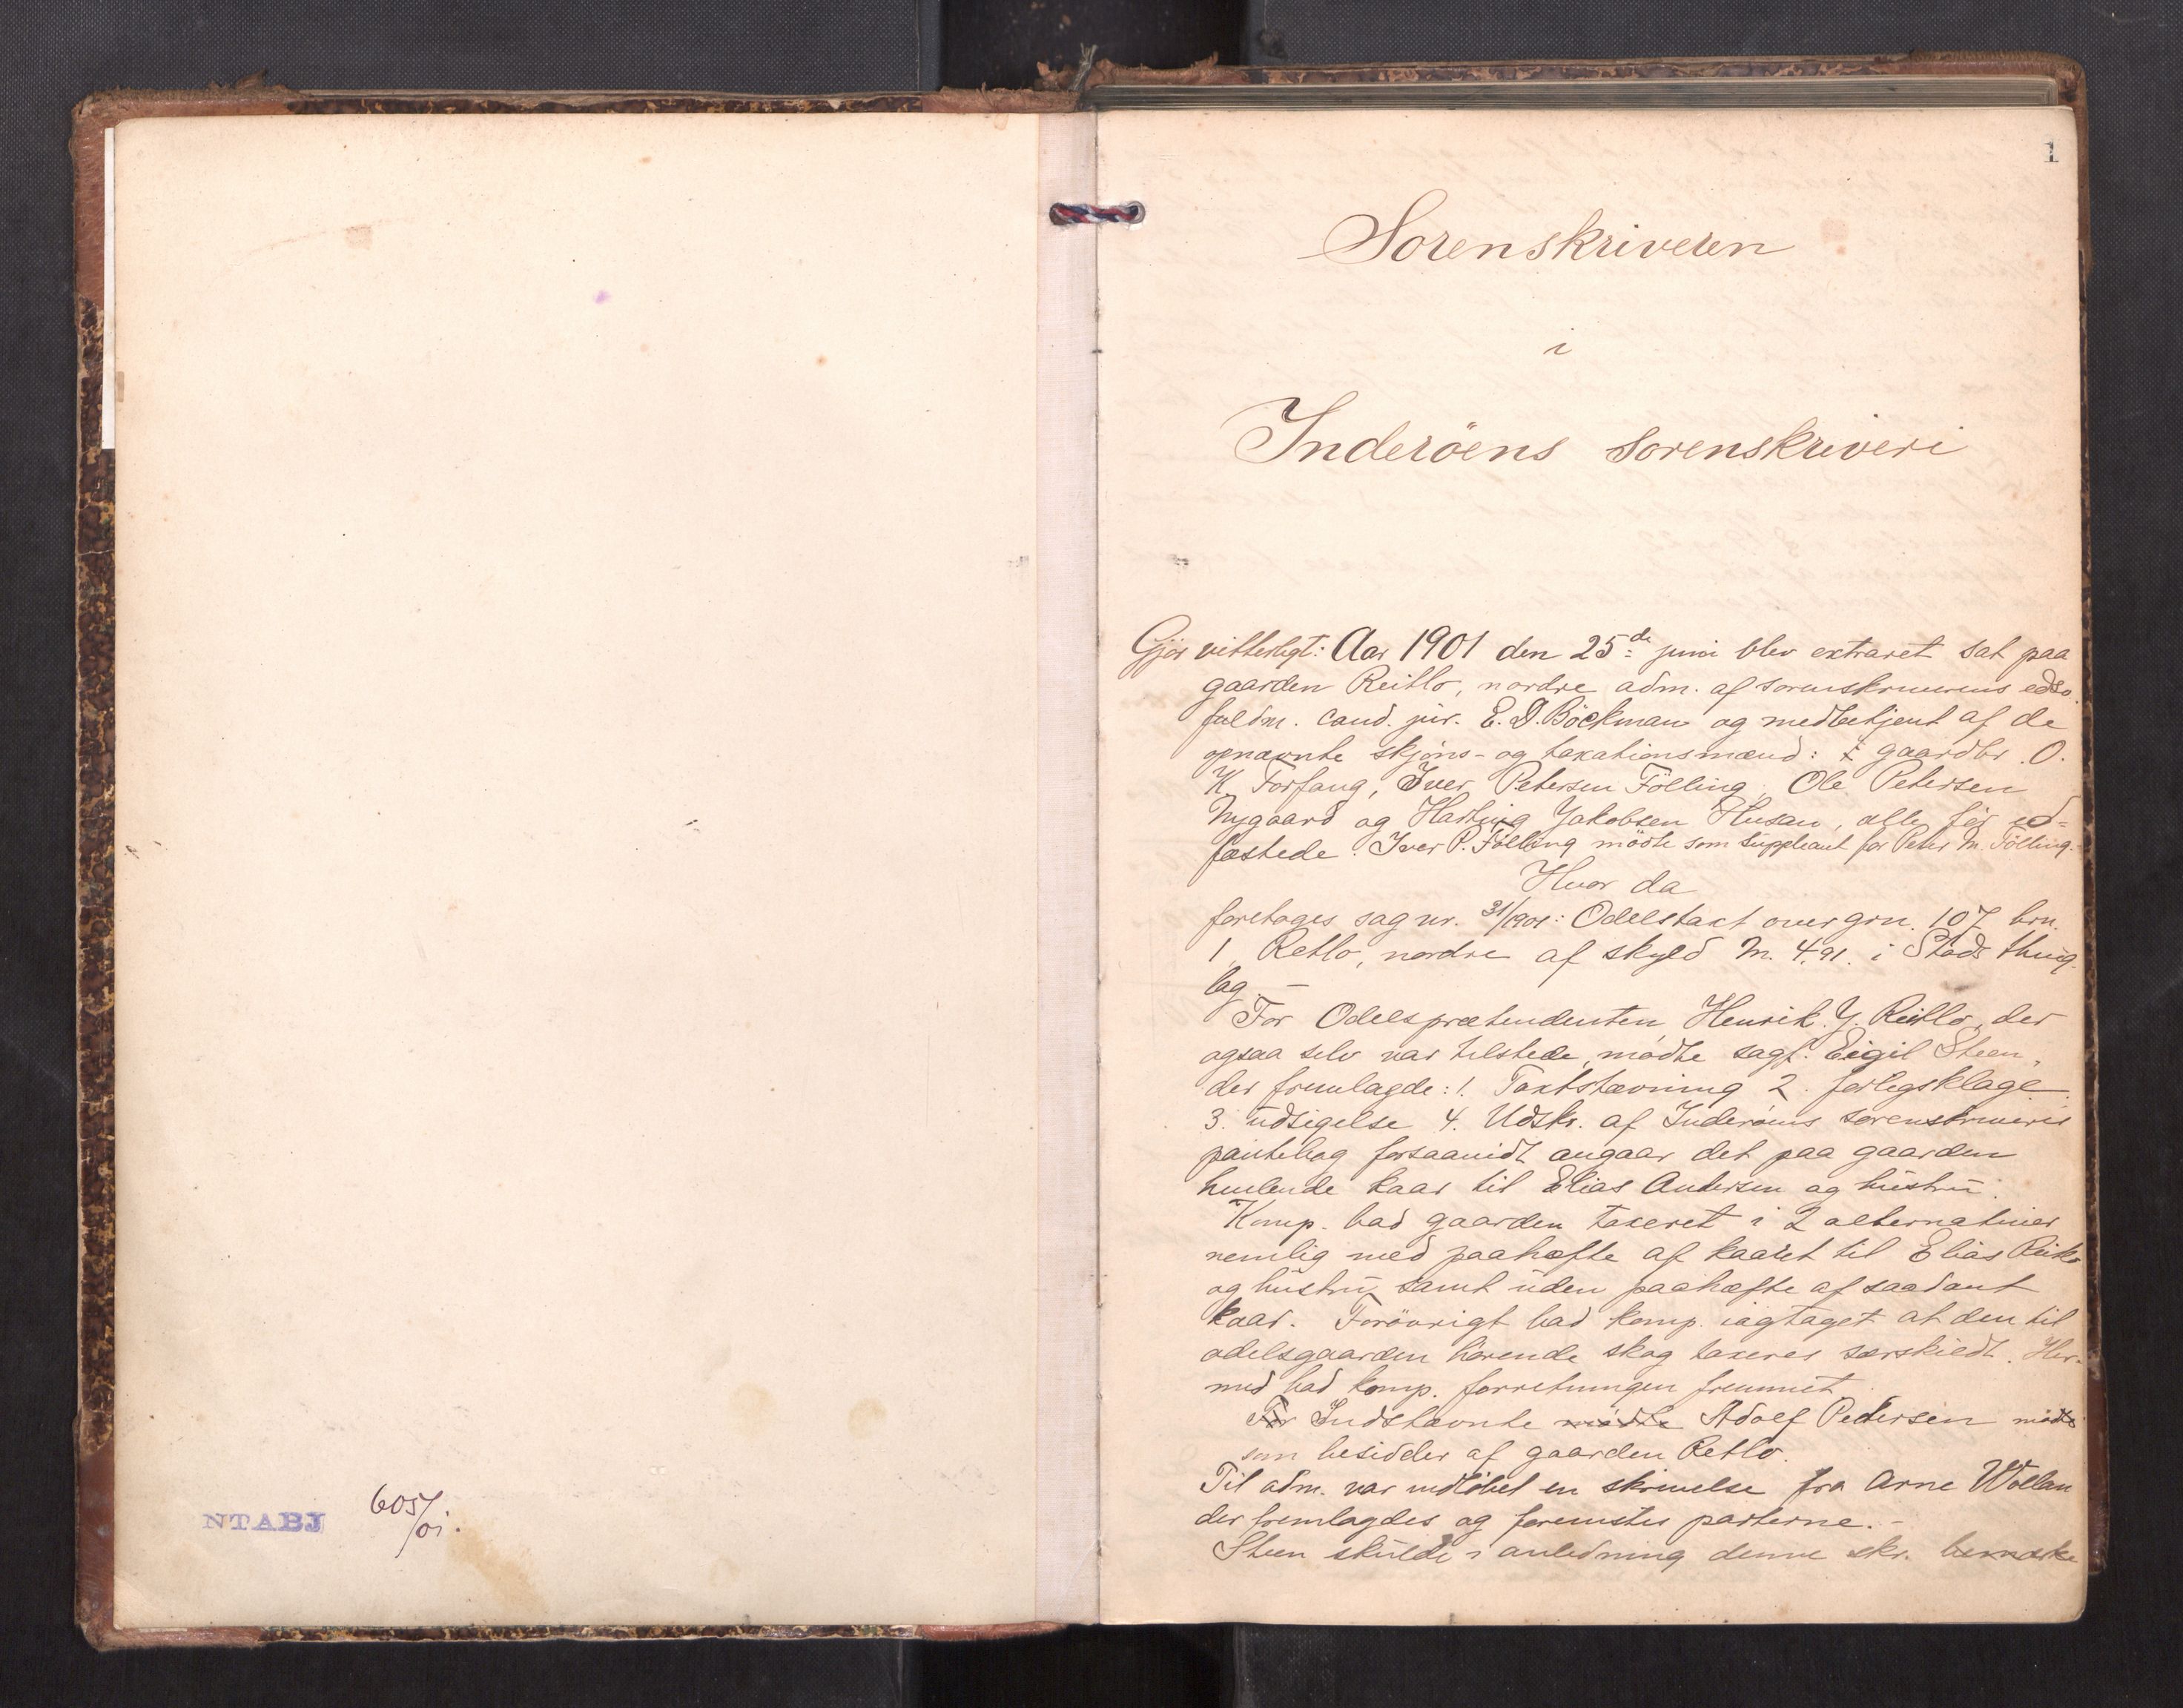 NTABJ 605/01.
1
Sorenskriveren
i
Inderöens sorenskriveri
Gjör vitterligt: Aar 1901 den 25de juni blev extraret sat paa
gaarden Reitlo, nordre adm. af sorenskriverens edso.
fuldm. cand. jur. E. D. Böckman og medbetjent af de
opnævnte skjöns- og taxationsmænd: gaardbr. O.
K. Forfang, Iver Petersen Fölling, Ole Petersen
Nygaard og Hartvig Jakobsen Husan, alle för ed=
fæstede. Iver P. Fölling mödte som suppleant for Peter M. Fölling.
Hvor da
foretoges sag nr. 31/1901: Odelstaxt over grn. 107 brn.
1, Retlo, nordre af skyld M. 4.91. i Stods thing-
lag. –
For Odelsprætendenten Henrik J. Reitlo, der
ogsaa selv var tilstede, mödte sagf. Eigil Steen,
der fremlagde: 1. Taxtstævning 2. forligsklage
3. udsigelse 4. Udskr. af Inderöens sorenskriveris
pantebog forsaavidt angaar det paa gaarden
heftende kaar til Elias Andersen og hustru.
Komp. bad gaarden taxeret i 2 alternativer
nemlig med paahæfte af kaaret til Elias Reitlo
og hustru samt uden paahæfte af saadant
kaar. Forövrigt bad komp. iagtaget at den til
odelsgaarden hörende skog taxeres særskildt. Her-
med bad komp. forretningen fremmet.
For Indstævnte mödte Adolf Pedersen mödte
som besidder af gaarden Retlo.
Til adm. var indlöbet en skrivelse fra Arne Wollan
der fremlagdes og forevistes parterne. –
Steen skulde i anledning denne skr. bemærke